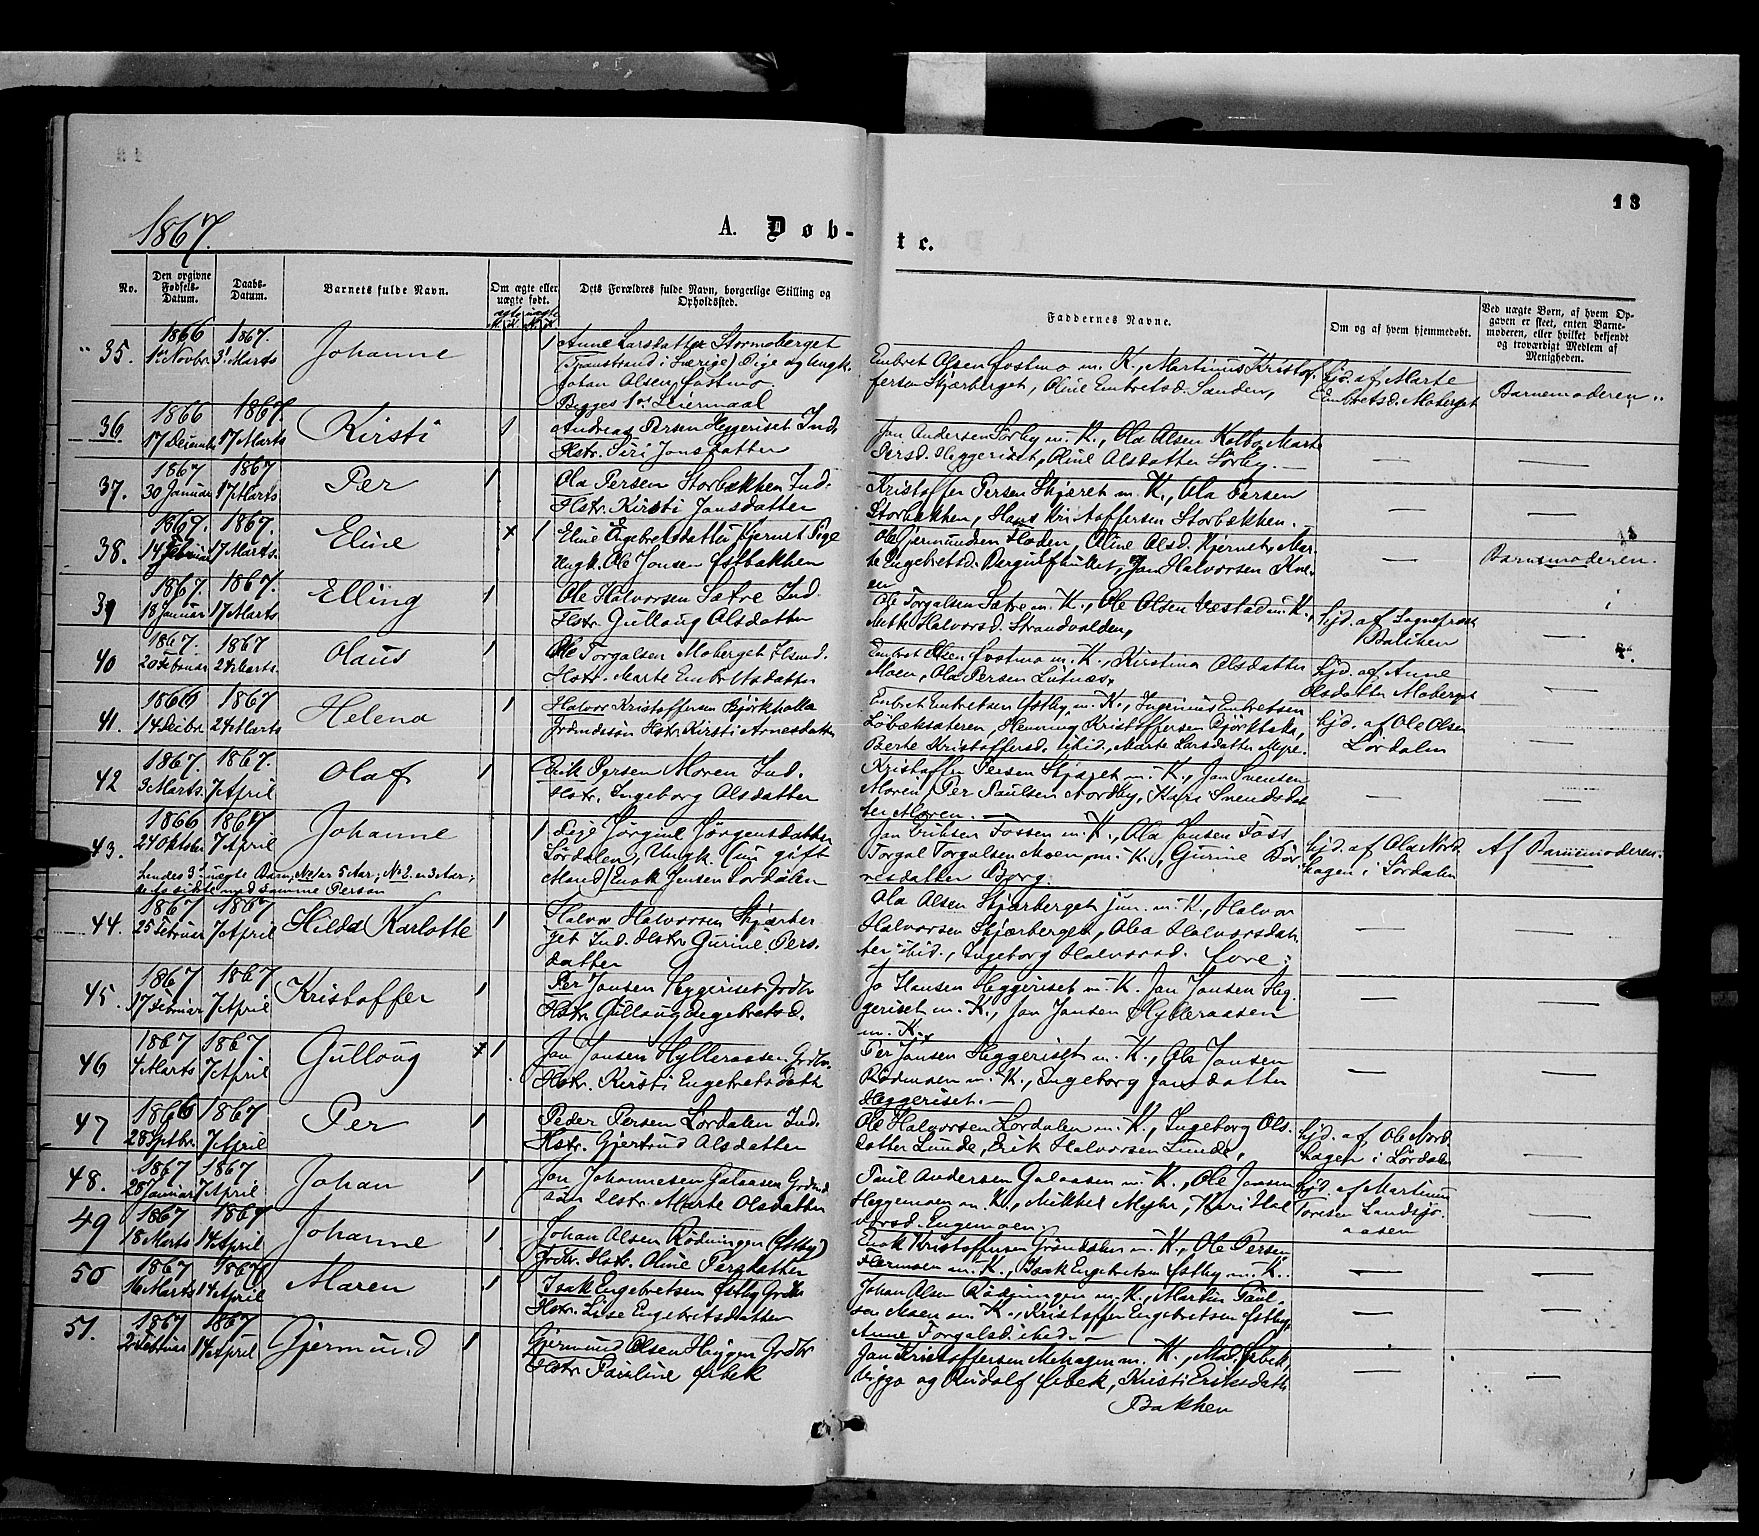 13
1867.
A. Døb-
te.
No.
Den opgivne Fødsels-Datum.
Daabs-Datum.
Barnets fulde Navn.
Om ægte eller uægte født.
ægte uægte
M. K. M. K.
Dets Forældres fulde Navn, borgerlige Stilling og Opholdssted.
Faddernes Navne.
Om og af hvem hjemmedøbt.
Ved uægte Børn, af hvem Opgaven er skeet, enten Barnemoderen, eller hvilket bekjendt og troværdigt Medlem af Menigheden.
35. 1866 1ste Novbr 1867. 3 Marts Johanne 1
Anne Larsdatter Stormoberget
(Transtrand i Sverige) Pige og Ungk.
Johan Olsen Fostmo
Begges 1ste Leiermaal
Embret Olsen Fostmo m. K., Martinus Kristof-
fersen Skjærberget, Oline Embretsd. Sanden,
Hjd. af Marte
Embretsd. Moberget
Barnemoderen
36 1866 17 Decemb 1867. 17 Marts Kirsti 1
Andreas Persen Heggeriset Ind.
Hstr. Siri Jonsdatter
Jon Andersen Sørby m. K., Ola Olsen Kolbo, Marte
Persd. Heggeriset, Oline Olsdatter Sørby. —
37. 1867 30 Januar 1867 17 Marts Per 1
Ola Persen Storbækken Ind.
Hstr. Kirsti Jonsdatter
Kristoffer Persen Skjæret m. K., Ola Persen
Storbækken, Hans Kristoffersen Storbækken.
38. 1867. 14 Februar 1867. 17 Marts. Eline x 1
Eline Engebretsdatter Kjernet Pige
Ungk. Ole Jonsen Østbakken
Ole Gjermundsen Floden, Oline Olsd. Kjernet, Mar-
te Engebretsd. Bergulfhullet, Jon Halvorsen Kne-
en
Barnemoderen.
39 1867. 18 Januar 1867. 17 Marts Elling 1
Ole Halvorsen Sætre Ind.
Hstr. Gulloug Olsdatter
Ole Torgalsen Sætre m. K., Ole Olsen Vestad m. K.,
Mette Halvorsd. Strandvolden,
Hjd. af Sognepræst
Balchen
40 1867. 20 Februar 1867 24 Marts Olaus 1
Ole Torgalsen Moberget Hsmd.
Hstr. Marte Embretsdatter
Embret Olsen Fostmo m. K., Kirstina Olsdatter
Moen, Ola Persen Lutnæs,
Hjd. af Anne
Olsdatter Moberget
41. 1866 14 Decbr 1867 24 Marts Helena 1
Halvor Kristoffersen Bjørkhalla
Jordmdssøn Hstr. Kirsti Arnesdatter
Embret Embretsen Østby m. K., Ingerinus Embretsen
Løbæksæteren, Henning Kristoffersen Bjørkhaka,
Berte Kristoffersd. ibid., Marte Larsdatter Myre.
Hjd. af Ole Olsen
Lørdalen
42 1867 3 Marts. 1867. 7 April Olaf 1
Erik Persen Moren Ind.
Hstr. Ingeborg Olsdatter
Kristoffer Persen Skjæret m. K., Jon Svensen
Moren, Per Paulsen Nordby, Kari Svendsdat-
ter Moren. —
43. 1866 24 Oktober 1867 7 April Johanne 1
hendes 3die uægte Barn; No 1 er 5 Aar; No 2 er 3 Aar;
de to sidste med samme Person
Pige Jørgine Jørgensdatter
Lørdalen, Ungk. (nu gift
Mand) Enok Jensen Lørdalen
Jon Eriksen Fossen m. K., Ola Jonsen Foss
Torgal Torgalsen Moen m. K., Gurine Bør-
resdatter Borg.
Hjd. af Ola Nord-
hagen i Lørdalen
Af Barnemoderen.
44. 1867 25 Februar 1867 7 April Hilda Karlotte 1
Halvor Halvorsen Skjærber-
get Ind. Hstr. Gurine Pers-
datter
Ola Olsen Skjærberget jun. m. K., Halvor
Halvorsen Skjærberget, Olea Halvorsdat-
ter ibid., Ingeborg Halvorsd.
45. 1867 17 Februar 1867 7 April Kristoffer 1
Per Jonsen Heggeriset Grdbr
Hstr. Gulloug Engebretsd.
Jo Hansen Heggeriset m. K. Jon Jonsen Heg-
geriset m. K., Jon Jonsen Hylleraasen
m. K.
46 1867 4 Marts 1867 7 April Gulloug x 1
Jon Jonsen Hylleraasen Grdbr.
Hstr. Kirsti Engebretsdatt.
Per Jonsen Heggeriset m. K., Ola Jonsen
Rødmoen m. K., Ingeborg Jonsdatter
Heggeriset. —
47 1866 28 Septbr. 1867. 7 April Per 1
Peder Persen Lørdalen Ind.
Hstr. Gjertrud Olsdatter
Ole Halvorsen Lørdalen m. K., Ingeborg Ols-
datter Lunde, Erik Halvorsen Lunde,
Hjd. af Ole Nord-
hagen i Lørdalen
48. 1867 28 Januar 1867 7 April Johan 1
Jon Johannesen Galaasen Grdmds-
søn Hstr. Marte Olsdatter
Paul Andersen Galaasen m. K., Ole Jonsen
Heggemoen m. K., Mikkel Myhr, Kari Hal-
vorsd. Engemoen.
Hjd. af Martinus
Toresen Landsjø-
aasen
49 1867 18 Marts 1867 14 April Johanne 1
Johan Olsen Rødningen (Østby)
Grdbr. Hstr. Oline Persdatter
Enok Kristoffersen Grøndalen m. K., Ole Persen
Flermoen m. K., Isak Engebretsen Østby m. K.
50 1867 16 Marts 1867 14 April Maren 1
Isak Engebretsen Østby Grdbr
Hstr. Lise Engebretsdatter
Johan Olsen Rødningen m. K., Martin Paul-
sen Moen m. K., Kristoffer Engebretsen Østby,
Anne Torgalsd. ibid. —
51. 1867 1867 14 April Gjermund 1
Gjermund Olsen Haugen Grdbr
Hstr. Pauline Ørbek
Jon Kristoffersen Mehagen m. K., Mad. Ørbek,
Viggo og Rudolf Ørbek, Kristi Eriksdatt.
Bakken